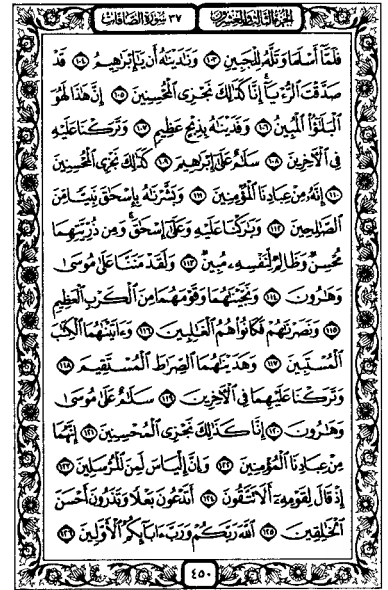 الجزء الثالث والعشرون
٣٧ سورة الصافات
فَلَمَّآ أَسۡلَمَا وَتَلَّهُۥ لِلۡجَبِينِ ١٠٣ وَنَٰدَيۡنَٰهُ أَن يَٰٓإِبۡرَٰهِيمُ ١٠٤ قَدۡ
صَدَّقۡتَ ٱلرُّءۡيَآۚ إِنَّا كَذَٰلِكَ نَجۡزِي ٱلۡمُحۡسِنِينَ ١٠٥ إِنَّ هَٰذَا لَهُوَ
ٱلۡبَلَٰٓؤُاْ ٱلۡمُبِينُ ١٠٦ وَفَدَيۡنَٰهُ بِذِبۡحٍ عَظِيمٖ ١٠٧ وَتَرَكۡنَا عَلَيۡهِ
فِي ٱلۡأٓخِرِينَ ١٠٨ سَلَٰمٌ عَلَىٰٓ إِبۡرَٰهِيمَ ١٠٩ كَذَٰلِكَ نَجۡزِي ٱلۡمُحۡسِنِينَ
١١٠ إِنَّهُۥ مِنۡ عِبَادِنَا ٱلۡمُؤۡمِنِينَ ١١١ وَبَشَّرۡنَٰهُ بِإِسۡحَٰقَ نَبِيّٗا مِّنَ
ٱلصَّٰلِحِينَ ١١٢ وَبَٰرَكۡنَا عَلَيۡهِ وَعَلَىٰٓ إِسۡحَٰقَۚ وَمِن ذُرِّيَّتِهِمَا
مُحۡسِنٞ وَظَالِمٞ لِّنَفۡسِهِۦ مُبِينٞ ١١٣ وَلَقَدۡ مَنَنَّا عَلَىٰ مُوسَىٰ
وَهَٰرُونَ ١١٤ وَنَجَّيۡنَٰهُمَا وَقَوۡمَهُمَا مِنَ ٱلۡكَرۡبِ ٱلۡعَظِيمِ
١١٥ وَنَصَرۡنَٰهُمۡ فَكَانُواْ هُمُ ٱلۡغَٰلِبِينَ ١١٦ وَءَاتَيۡنَٰهُمَا ٱلۡكِتَٰبَ
ٱلۡمُسۡتَبِينَ ١١٧ وَهَدَيۡنَٰهُمَا ٱلصِّرَٰطَ ٱلۡمُسۡتَقِيمَ ١١٨
وَتَرَكۡنَا عَلَيۡهِمَا فِي ٱلۡأٓخِرِينَ ١١٩ سَلَٰمٌ عَلَىٰ مُوسَىٰ
وَهَٰرُونَ ١٢٠ إِنَّا كَذَٰلِكَ نَجۡزِي ٱلۡمُحۡسِنِينَ ١٢١ إِنَّهُمَا
مِنۡ عِبَادِنَا ٱلۡمُؤۡمِنِينَ ١٢٢ وَإِنَّ إِلۡيَاسَ لَمِنَ ٱلۡمُرۡسَلِينَ ١٢٣
إِذۡ قَالَ لِقَوۡمِهِۦٓ أَلَا تَتَّقُونَ ١٢٤ أَتَدۡعُونَ بَعۡلٗا وَتَذَرُونَ أَحۡسَنَ
ٱلۡخَٰلِقِينَ ١٢٥ ٱللَّهَ رَبَّكُمۡ وَرَبَّ ءَابَآئِكُمُ ٱلۡأَوَّلِينَ ١٢٦
٤٥٠